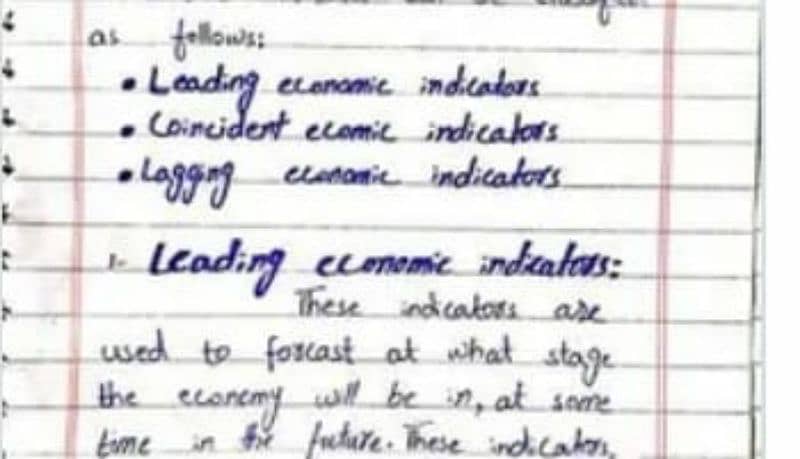 as follows:
• Leading economic indicators
• Coincident ecomic indicators
• Lagging economic indicators
1- Leading economic indicators:
These indicators are
used to forcast at what stage
the economy will be in, at some
time in the future. These indicators,